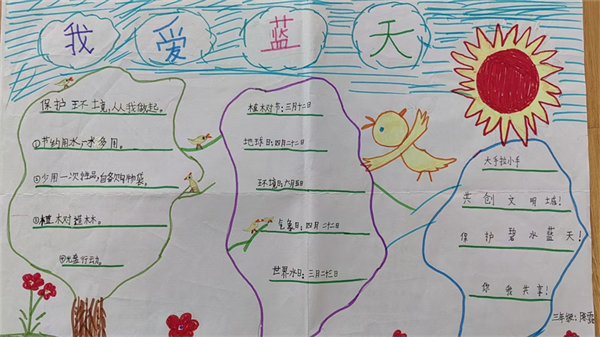 我爱蓝天
保护环境,人人我做起。
①节约用水一水多用。
②少用一次性品,自备购物袋。
③植树造林。
④光盘行动。
植树节:三月十二日
地球日:四月二十二日
环境日:六月五日
气象日:四月二十二日
世界水日:三月二十二日
大手拉小手
共创文明城!
保护碧水蓝天!
你我共享!
三年级: